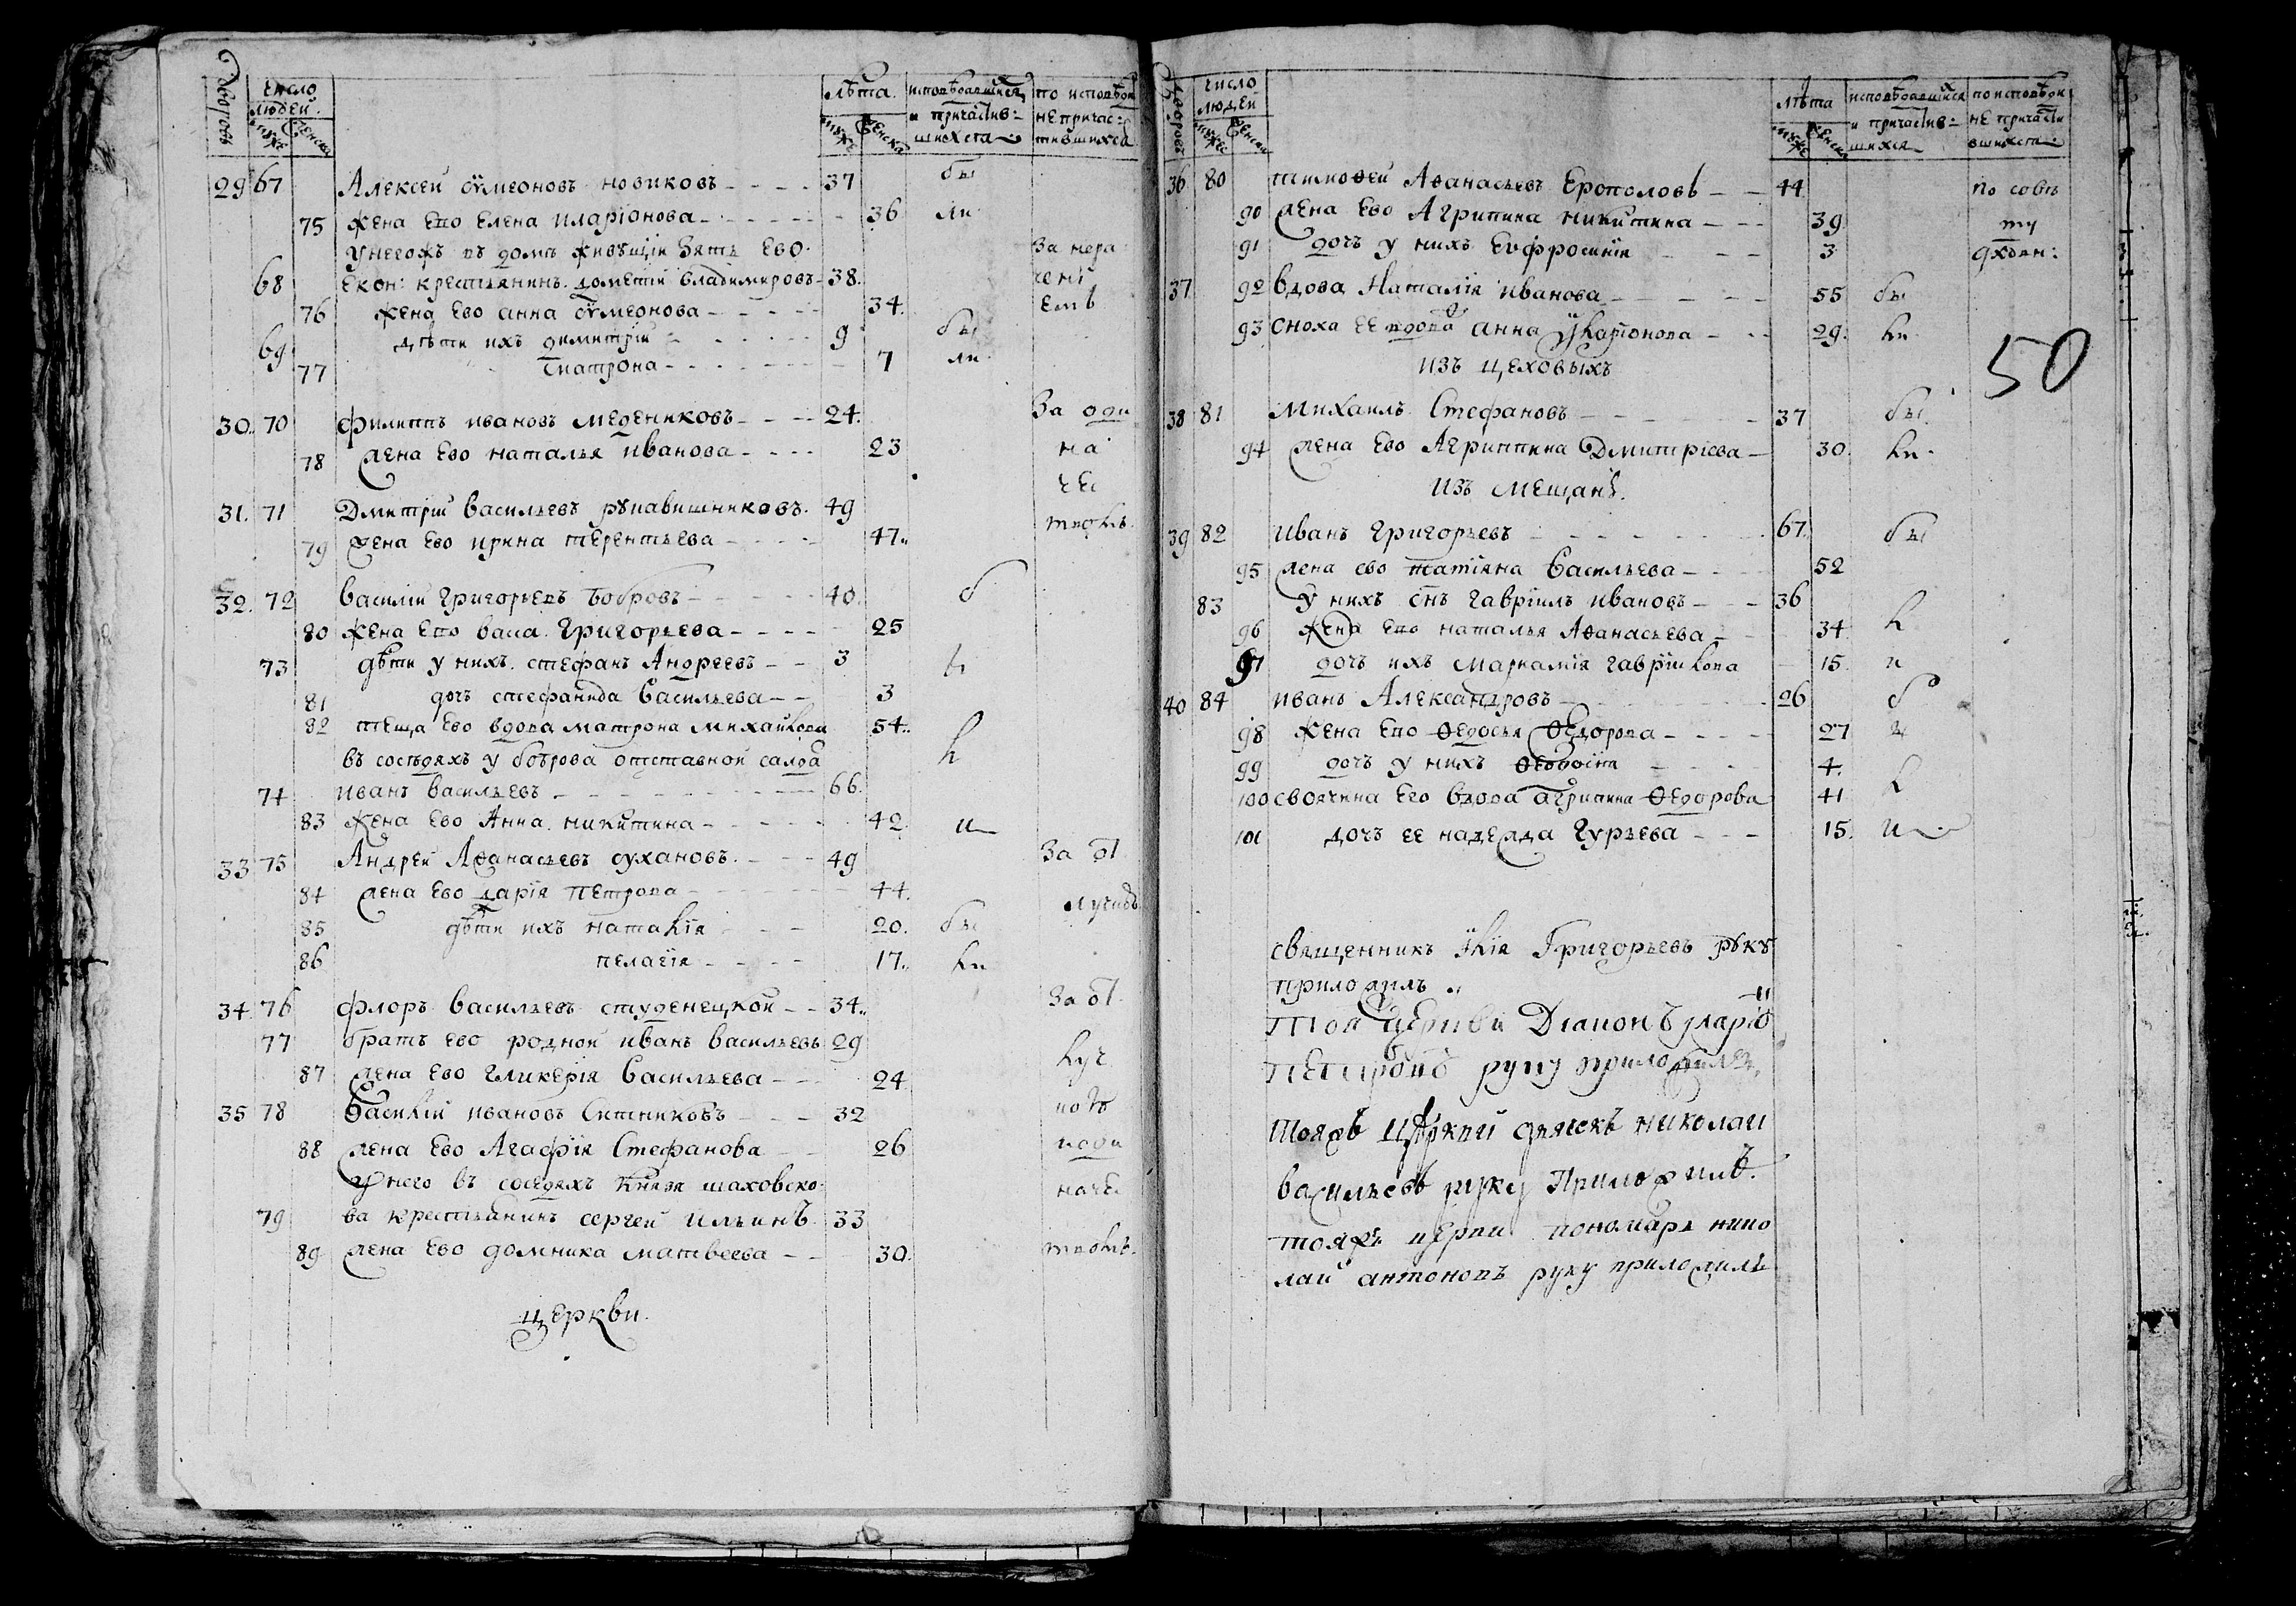 Дворовъ Число людей Лѣта исповѣдавшихся и причастив: шихся по исповѣди не причас: тившихся
мужс женска мужс женска
29 67 Алексей Сѵмеоновъ новиковъ 37 бы
75 жена Ево Елена иларионова 36 ли
у негожъ въ домѣ живущіи зять Ево за нера
68 Екон: крестьянинъ дометіи владимировъ 38 чені
76 жена Ево анна Сѵмеонова 34 емъ
69 дѣти ихъ димитріи 9 бы
77 матрона 7 ли
30 70 филиппъ ивановъ медениковъ 24 за оди
78 жена Ево наталья иванова 23 на
чес
31 71 Дмитріи васильевъ рукавишниковъ 49 твомъ
79 жена Ево ирина терентьева 47
32 72 василіи григорьевъ бобровъ 40 б
80 жена Ево васа григорьева 25
73 дѣти у нихъ стефанъ Андреевъ 3 ы
81 дочь стефанида васильева 3
82 теща Ево вдова матрона михайлова 54
въ сосѣдяхъ у боброва отставной салда л
74 иванъ васильевъ 66
83 жена Ево Анна никитина 42 и
33 75 Андреи Аѳанасьевъ сухановъ 49 за от
84 жена Ево дарія петрова 44 лучкою
85 дѣти ихъ наталія 20 бы
86 пелагія 17 ли
34 76 флоръ васильевъ студенецкои 34 за от
77 братъ ево роднои иванъ васильевъ 29 луч
87 жена Ево гликерія васильева 24
35 78 василіи ивановъ Ситниковъ 32
88 жена Ево Агафія Стефанова 26
у него въ соседяхъ князя шаховско
79 ва крестьянинъ сергеи ильинъ 33
89 жена Ево домника матвеева 30
церкви
Дворовъ число людей лѣта исповѣдавшихся и причастив: шихся по исповѣди не причасти вшихся
мужс женска мужс женска
36 80 тимоѳеи Аѳанасьевъ Ерополовъ 44 по совѣ
90 жена Ево Агрипина никитина 39 ту
91 дочь у нихъ Евфросинія 3 духовн:
37 92 вдова Наталія иванова 55 бы
93 сноха ее вдова анна иларіонова 29 ли
50
изъ цеховыхъ
38 81 михаилъ Стефановъ 37 бы
94 жена Ево Агриппина Дмитріева 30 ли
изъ мещанъ
39 82 иванъ григорьевъ 67 бы
95 жена ево татіяна васильева 52
83 у нихъ снъ гавріилъ ивановъ 36
96 жена Ево наталья Аѳанасьева 34 л
97 дочь ихъ гавріилова 15 и
40 84 иванъ Александровъ 26 б
98 жена Ево ѳедосья ѳедорова 27 ы
99 дочь у нихъ ѳеодосія 4
100 своячина Его вдова агрипина ѳедорова 41 л
101 дочь ее надежда гурьева 15 и
священникъ илія Григорьевъ руку
приложилъ
тоя церкви Діаконъ иларіо
петровъ руку приложилъ
тояжъ церкви дьячекъ николаи
васильевъ руку приложилъ
тояжъ церкви пономарь нико
лаи антоновъ руку приложилъ